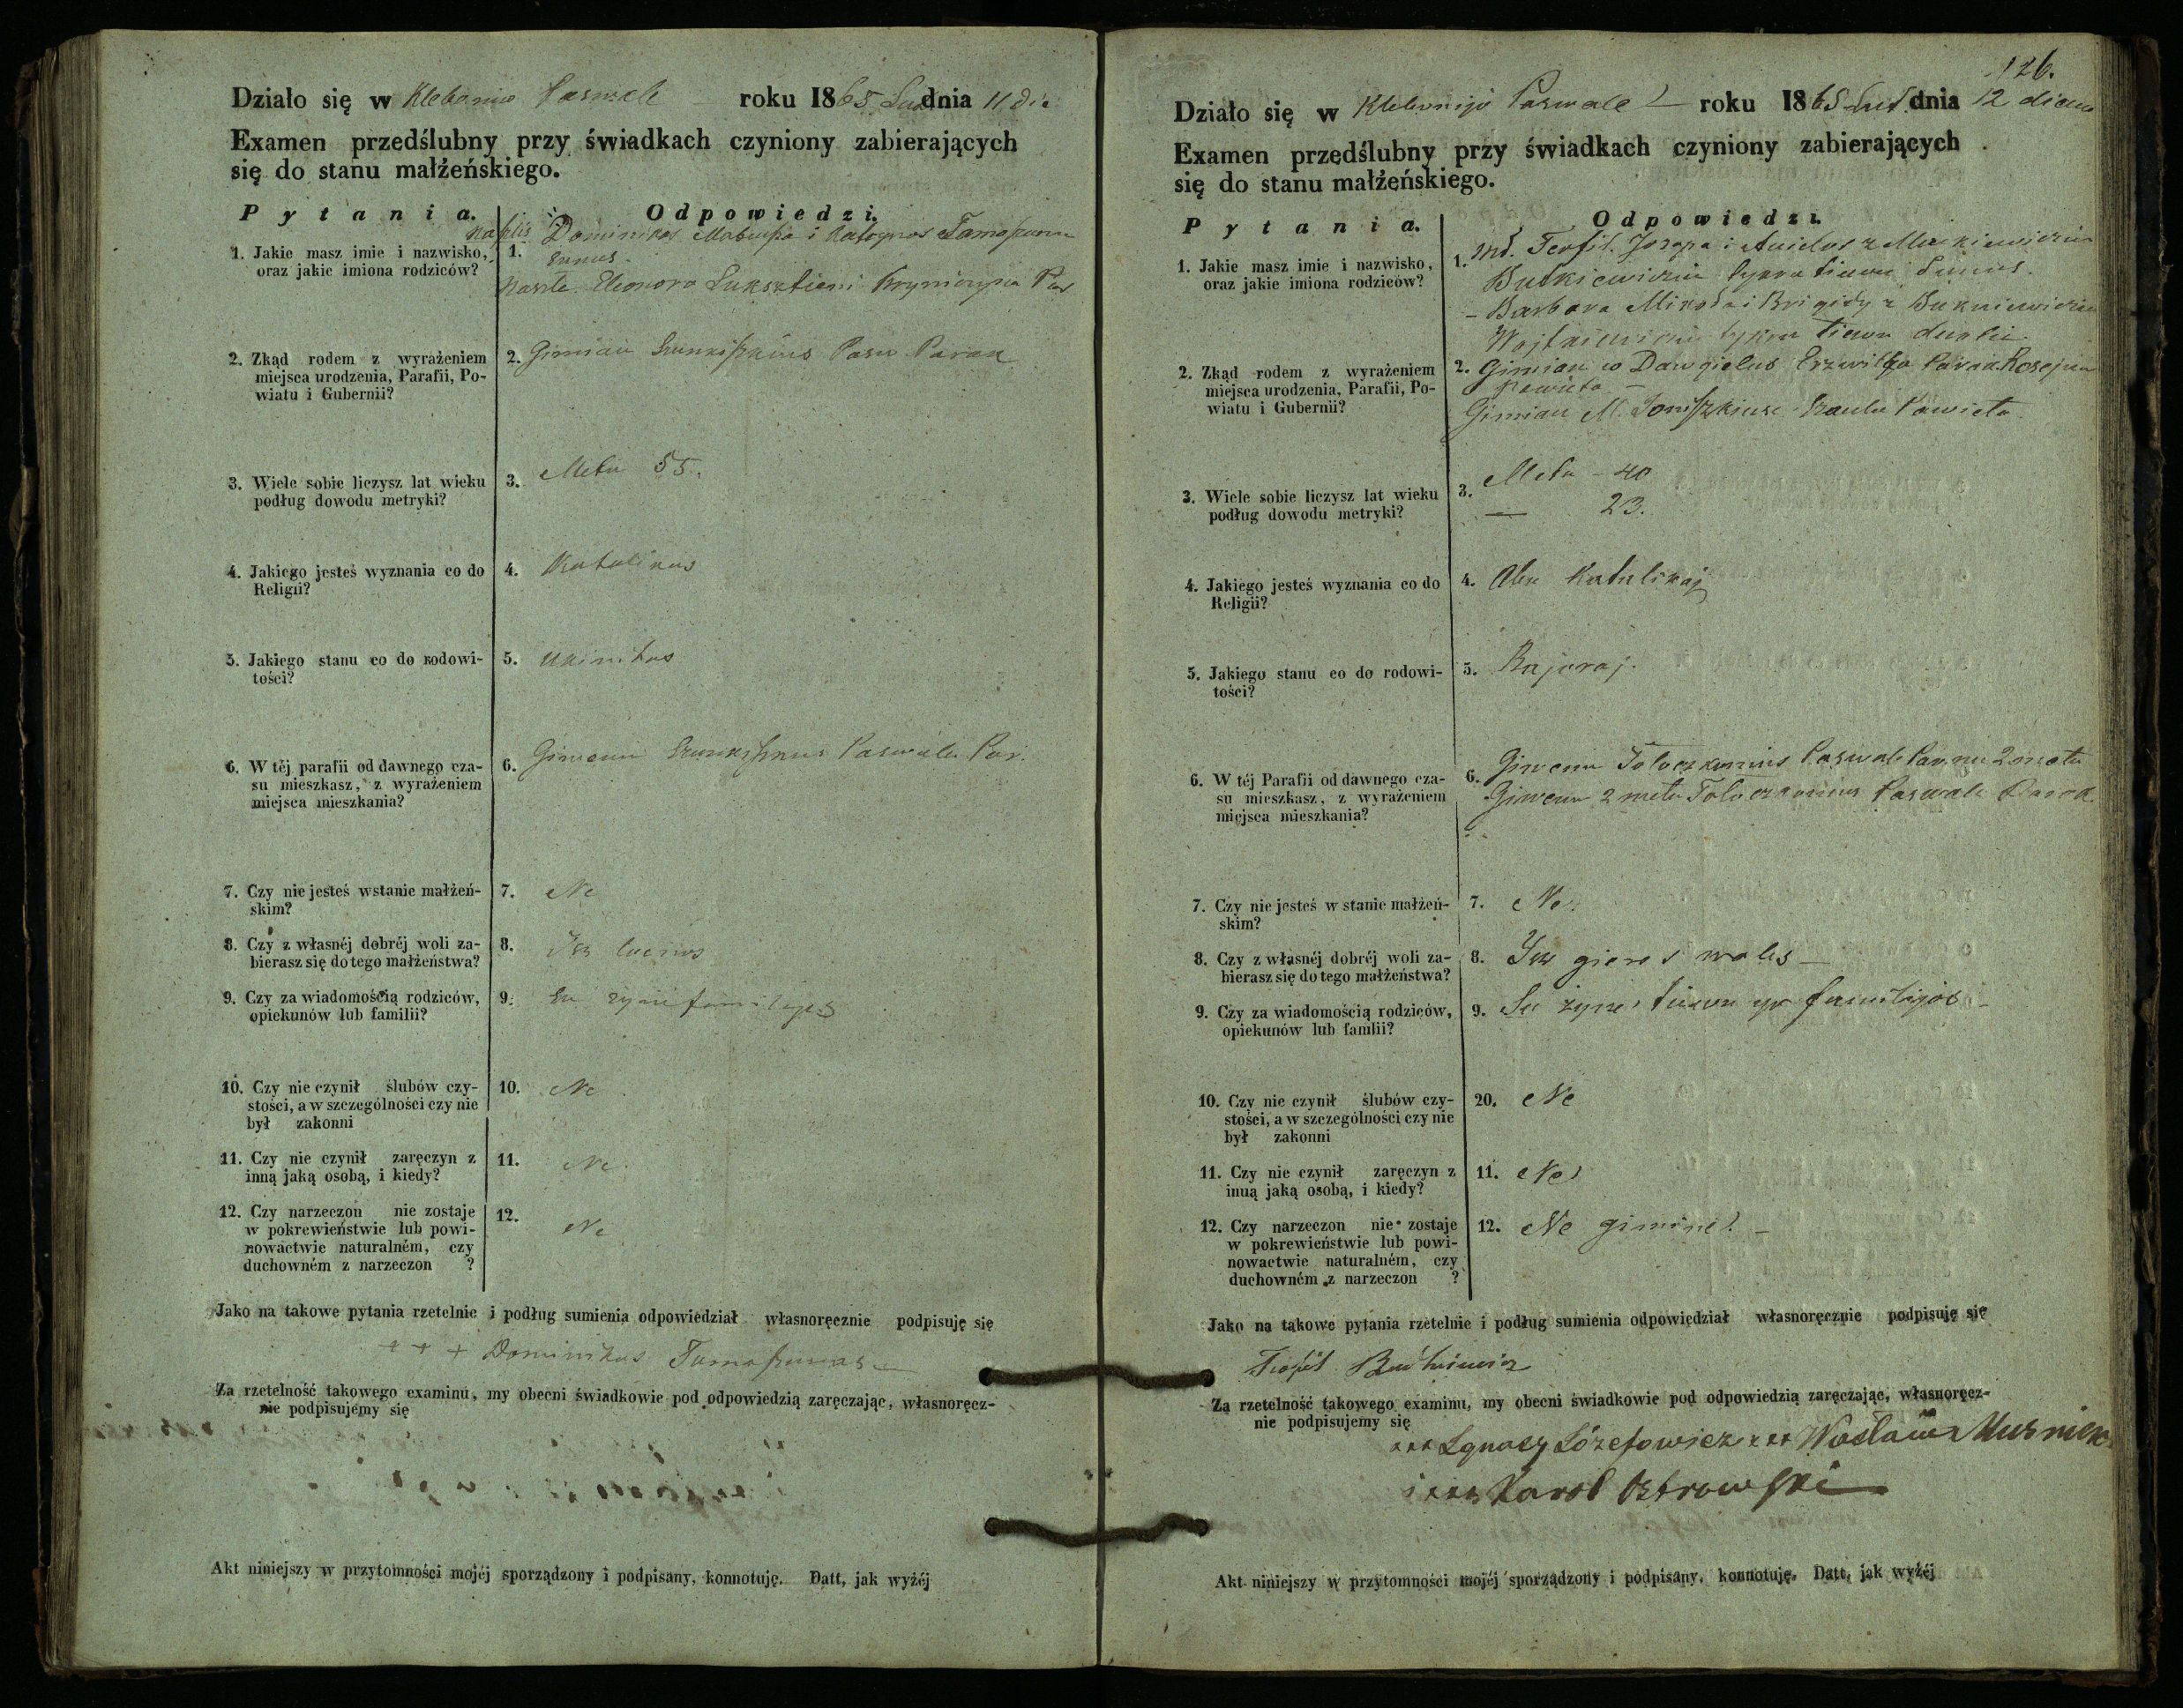 Działo się w Klebonijo Paswale roku 1865 dnia 11 die
Examen przedślubny przy świadkach czyniony zabierających
się do stanu małżeńskiego.
Pytania.
Odpowiedzi.
1. Jakie masz imie i nazwisko,
oraz jakie imiona rodziców?
1. Dominikas i Tamaszunu
sunus.
Naszle Eleonora
2. Zkąd rodem z wyrażeniem
miejsca urodzenia, Parafii, Po-
wiatu i Gubernii?
2. Gimiau Parak
3. Wiele sobie liczysz lat wieku
podług dowodu metryki?
3. Metu 55.
4. Jakiego jesteś wyznania co do
Religii?
4. Katalikas
5. Jakiego stanu co do rodowi-
tości?
5. Ukinikas
6. W téj parafii od dawnego cza-
su mieszkasz, z wyrażeniem
miejsca mieszkania?
6. Giwenu Paswale Par.
7. Czy nie jesteś w stanie małżeń-
skim?
7. Ne
8. Czy z własnéj dobréj woli za-
bierasz się do tego małżeństwa?
8. Isz
9. Czy za wiadomością rodziców,
opiekunów lub familii?
9. Su familijes
10. Czy nie czynił ślubów czy-
stości, a w szczególności czy nie
był zakonni
10. Ne
11. Czy nie czynił zaręczyn z
inną jaką osobą, i kiedy?
11. Ne.
12. Czy narzeczon nie zostaje
w pokrewieństwie lub powi-
nowactwie naturalném, czy
duchowném z narzeczon ?
12. Ne
Jako na takowe pytania rzetelnie i podług sumienia odpowiedział własnoręcznie podpisuję się
+ + + Dominikas Tamaszunas
Za rzetelność takowego examinu, my obecni świadkowie pod odpowiedzią zaręczając, własnoręcz-
nie podpisujemy się
Akt niniejszy w przytomności mojéj sporządzony i podpisany, konnotuję. Datt, jak wyżéj
126.
Działo się w Klebonijo Paswale roku 1865 dnia 12 diena
Examen przedślubny przy świadkach czyniony zabierających
się do stanu małżeńskiego.
Pytania.
Odpowiedzi.
1. Jakie masz imie i nazwisko,
oraz jakie imiona rodziców?
1. Teofil Jozapa i
Butkiewicziu tiewu Sunus.
– Barbara i Brigidy z
tiewu
2. Zkąd rodem z wyrażeniem
miejsca urodzenia, Parafii, Po-
wiatu i Gubernii?
2. Gimiau w Parak.
Pawieta –
Gimiau M. Joniszkiusc Pawieta.
3. Wiele sobie liczysz lat wieku
podług dowodu metryki?
3. Metu – 40
— 23.
4. Jakiego jesteś wyznania co do
Religii?
4. Abu Katalikaj
5. Jakiego stanu co do rodowi-
tości?
5. Bajoraj.
6. W téj Parafii od dawnego cza-
su mieszkasz, z wyrażeniem
miejsca mieszkania?
6. Giwenu Paswale 2 metu
Giwenu 2 metu Paswale Parak.
7. Czy nie jesteś w stanie małżeń-
skim?
7. Ne.
8. Czy z własnéj dobréj woli za-
bierasz się do tego małżeństwa?
8. Isz gieros wales –
9. Czy za wiadomością rodziców,
opiekunów lub familii?
9. Su żyne tiewu yr familijos –
10. Czy nie czynił ślubów czy-
stości, a w szczególności czy nie
był zakonni
20. Ne
11. Czy nie czynił zaręczyn z
inną jaką osobą, i kiedy?
11. Ne
12. Czy narzeczon nie zostaje
w pokrewieństwie lub powi-
nowactwie naturalném, czy
duchowném z narzeczon ?
12. Ne giminé. –
Jako na takowe pytania rzetelnie i podług sumienia odpowiedział własnoręcznie podpisuję się
Teofil Butkiewicz
Za rzetelność takowego examinu, my obecni świadkowie pod odpowiedzią zaręczając, własnoręcz-
nie podpisujemy się
xxx Ignacy Józefowicz xxx Wacław
i xxx Karol Ostrowski
Akt niniejszy w przytomności mojéj sporządzony i podpisany, konnotuję. Datt, jak wyżéj